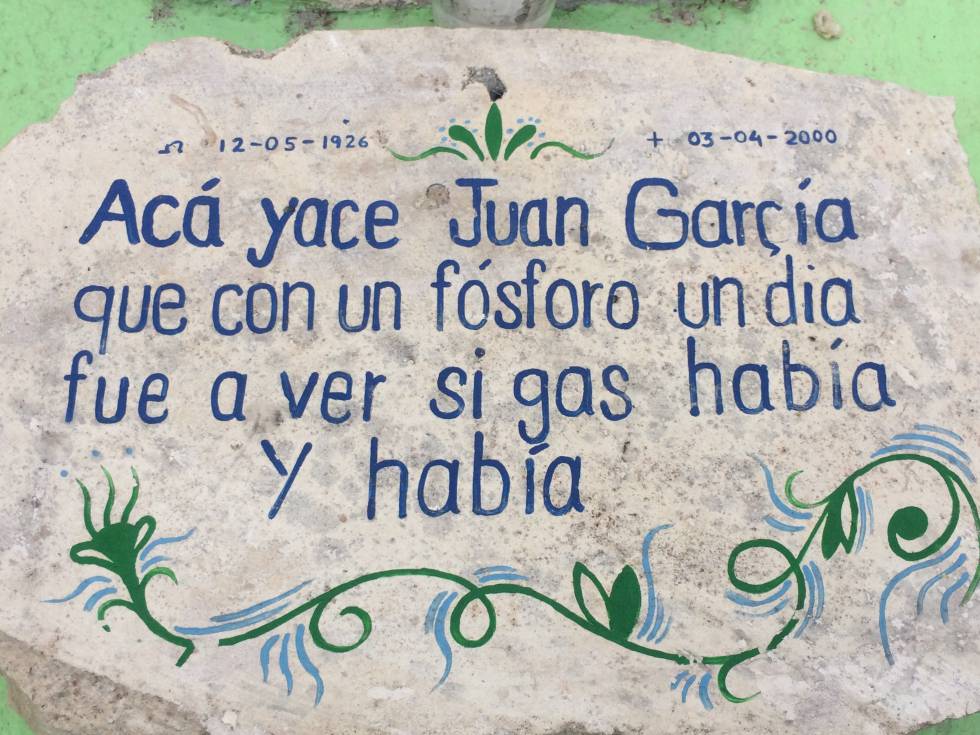 12-05-1926 + 03-04-2000
Acá yace Juan Garçía
que con un fósforo un dia
fue a ver si gas había
Y había